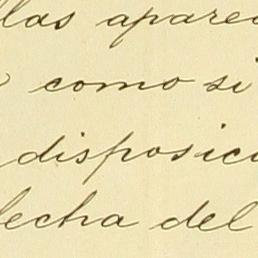 llas aparec
como si
disposici
fecha del